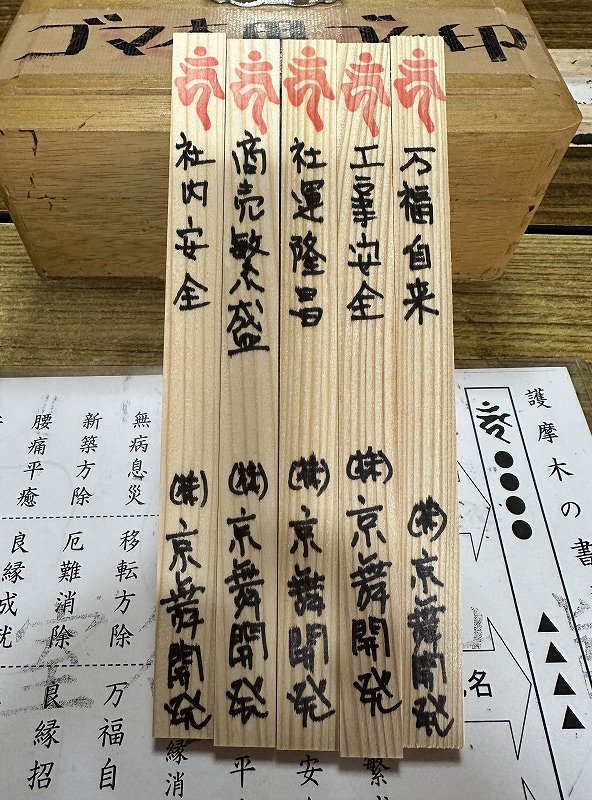 ゴマ木
印
万福自来
㈱京舞開発
工事安全
㈱京舞開発
社運隆昌
㈱京舞開発
商売繁盛
㈱京舞開発
社内安全
㈱京舞開発
護摩木の書
●●●●
▲▲▲▲
名
無病息災
新築方除
腰痛平癒
移転方除
厄難消除
良縁成就
万福自
良縁招